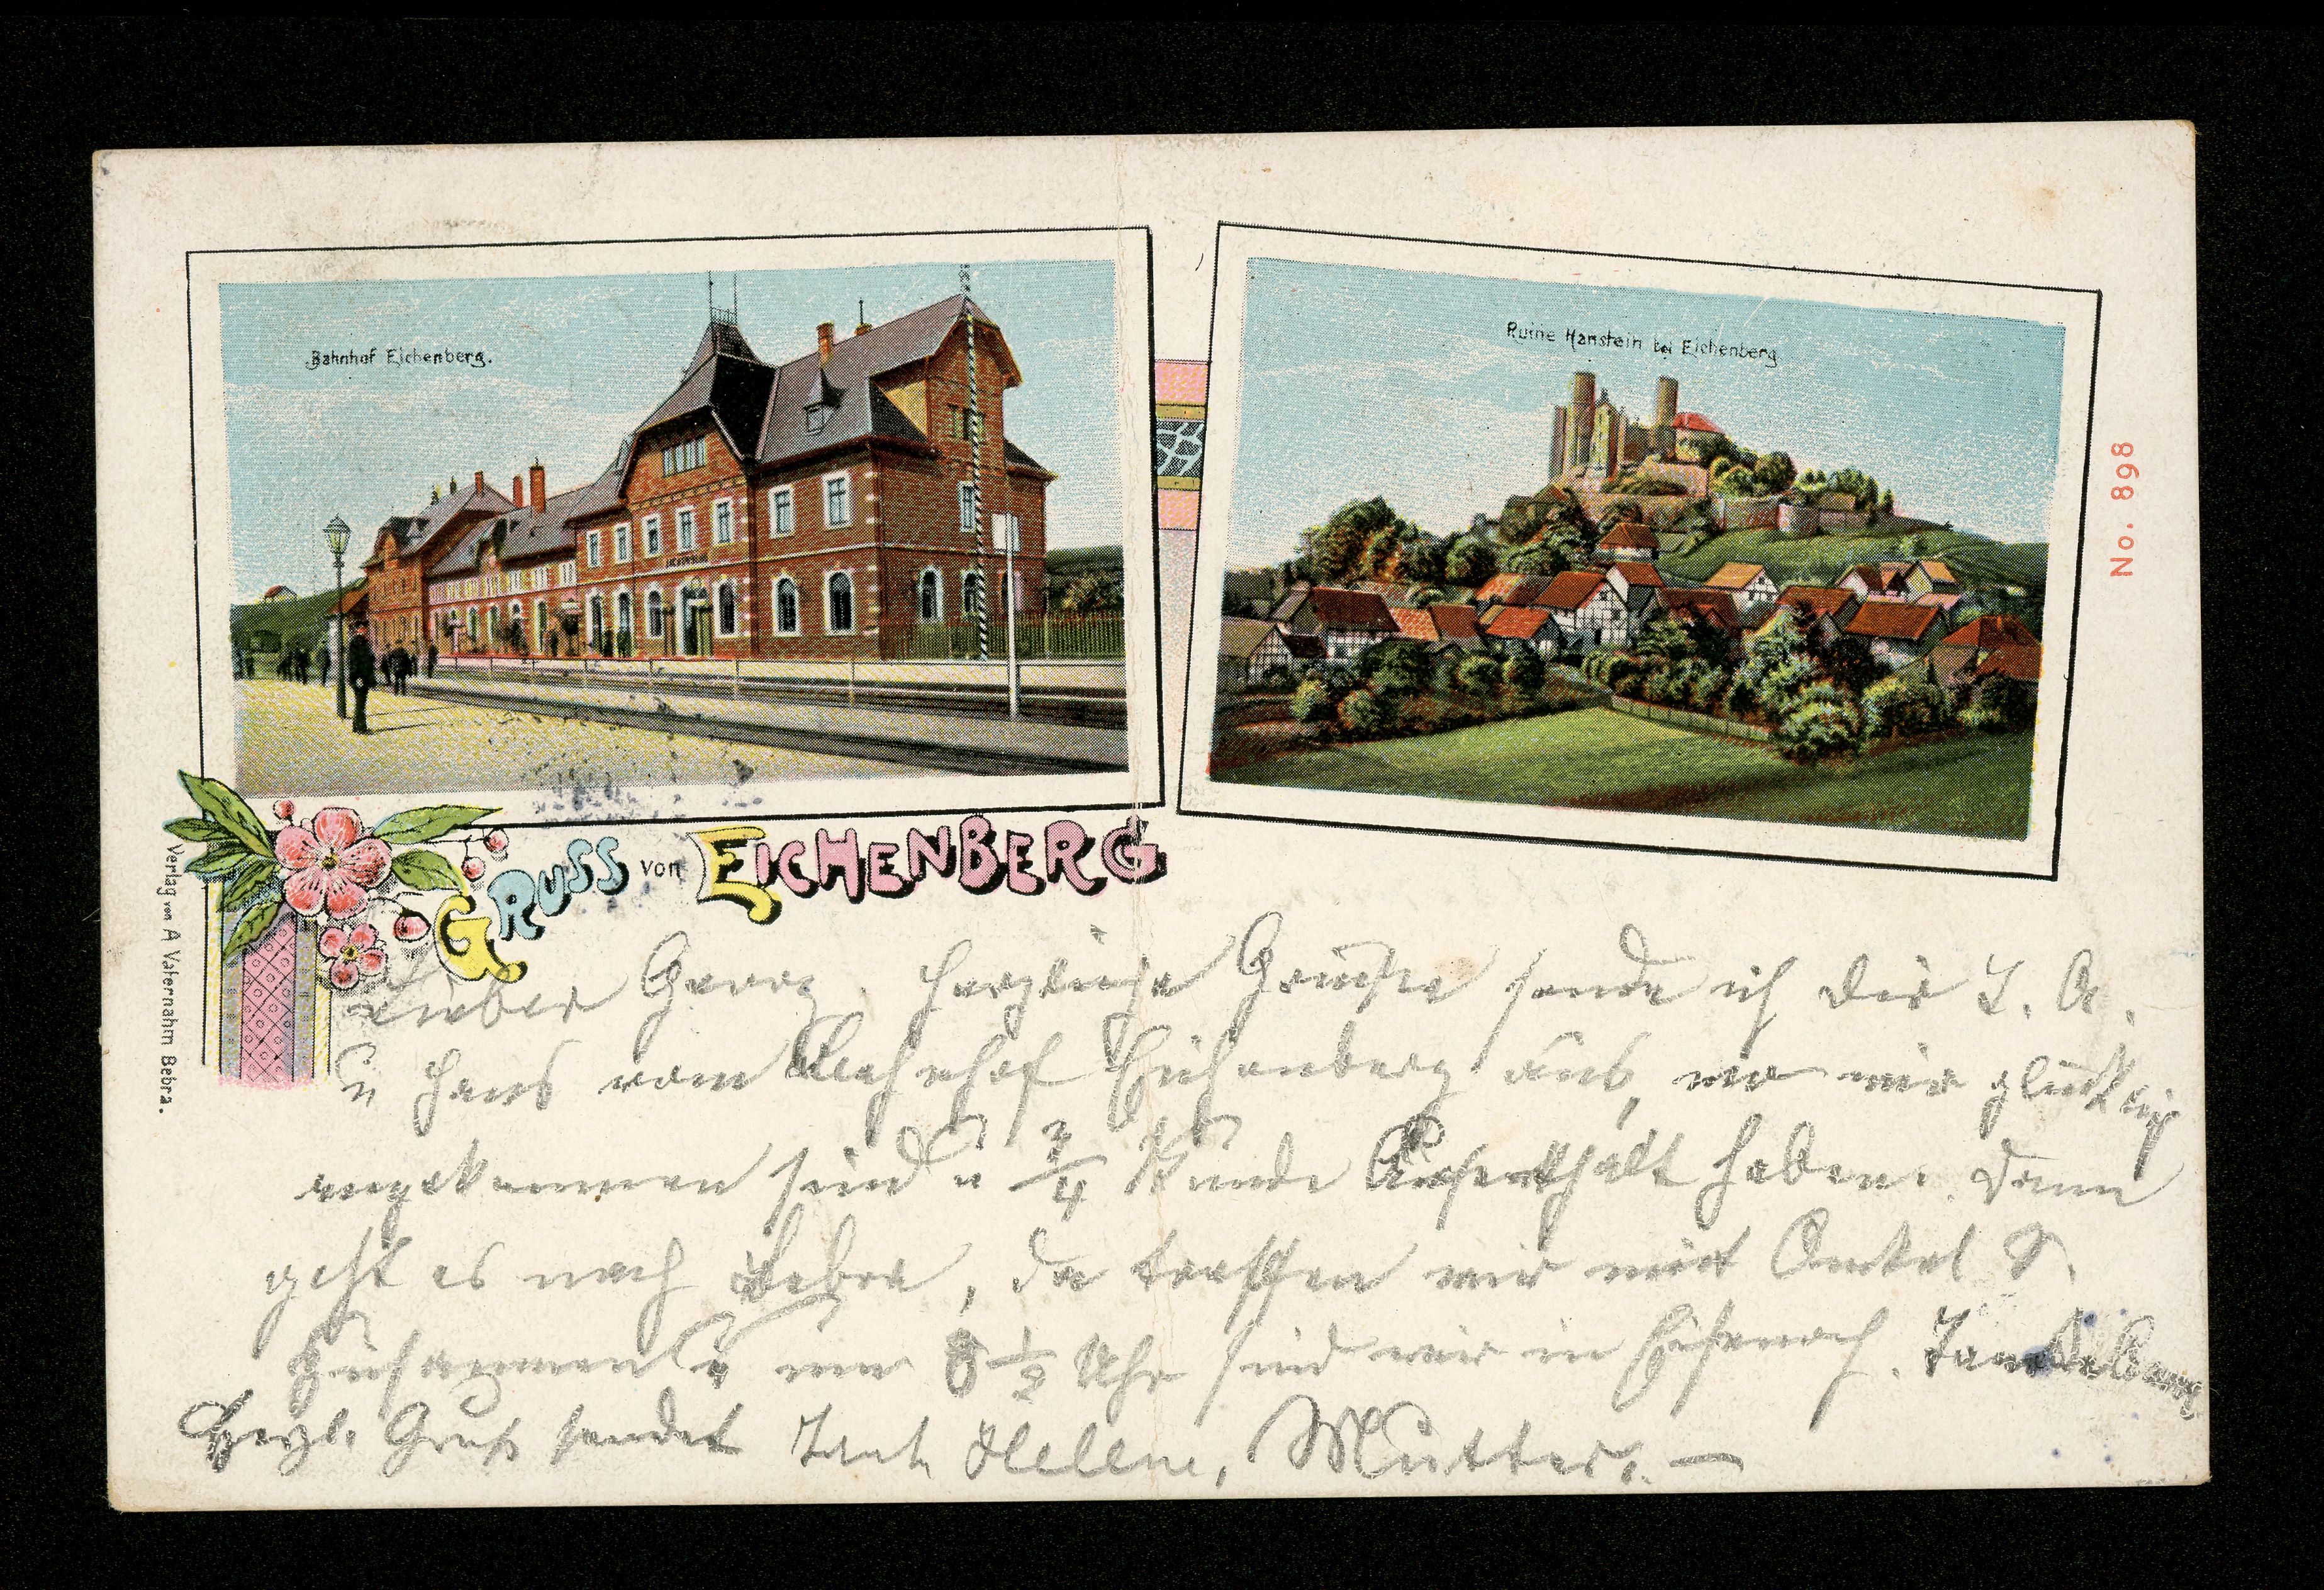 Bahnhof Eichenberg.
Ruine Hanstein bei Eichenberg
No. 898
GRUSS von EICHENBERG
Verlag von A Vaternahm Bebra.
Lieber Georg. Herzliche Grüße sende ich dir T. A.
u Hans vom Bahnhof Eichenberg aus, wo wir glücklich
angekommen sind u 3/4 Stunde Aufenthalt haben. Dann
geht es nach Bebra, da treffen wir mit Onkel S.
zusammen u um 8 1/2 Uhr sind wir in Eisenach.
Herzl. Gruß sendet Tant. Helene, Mutter. —